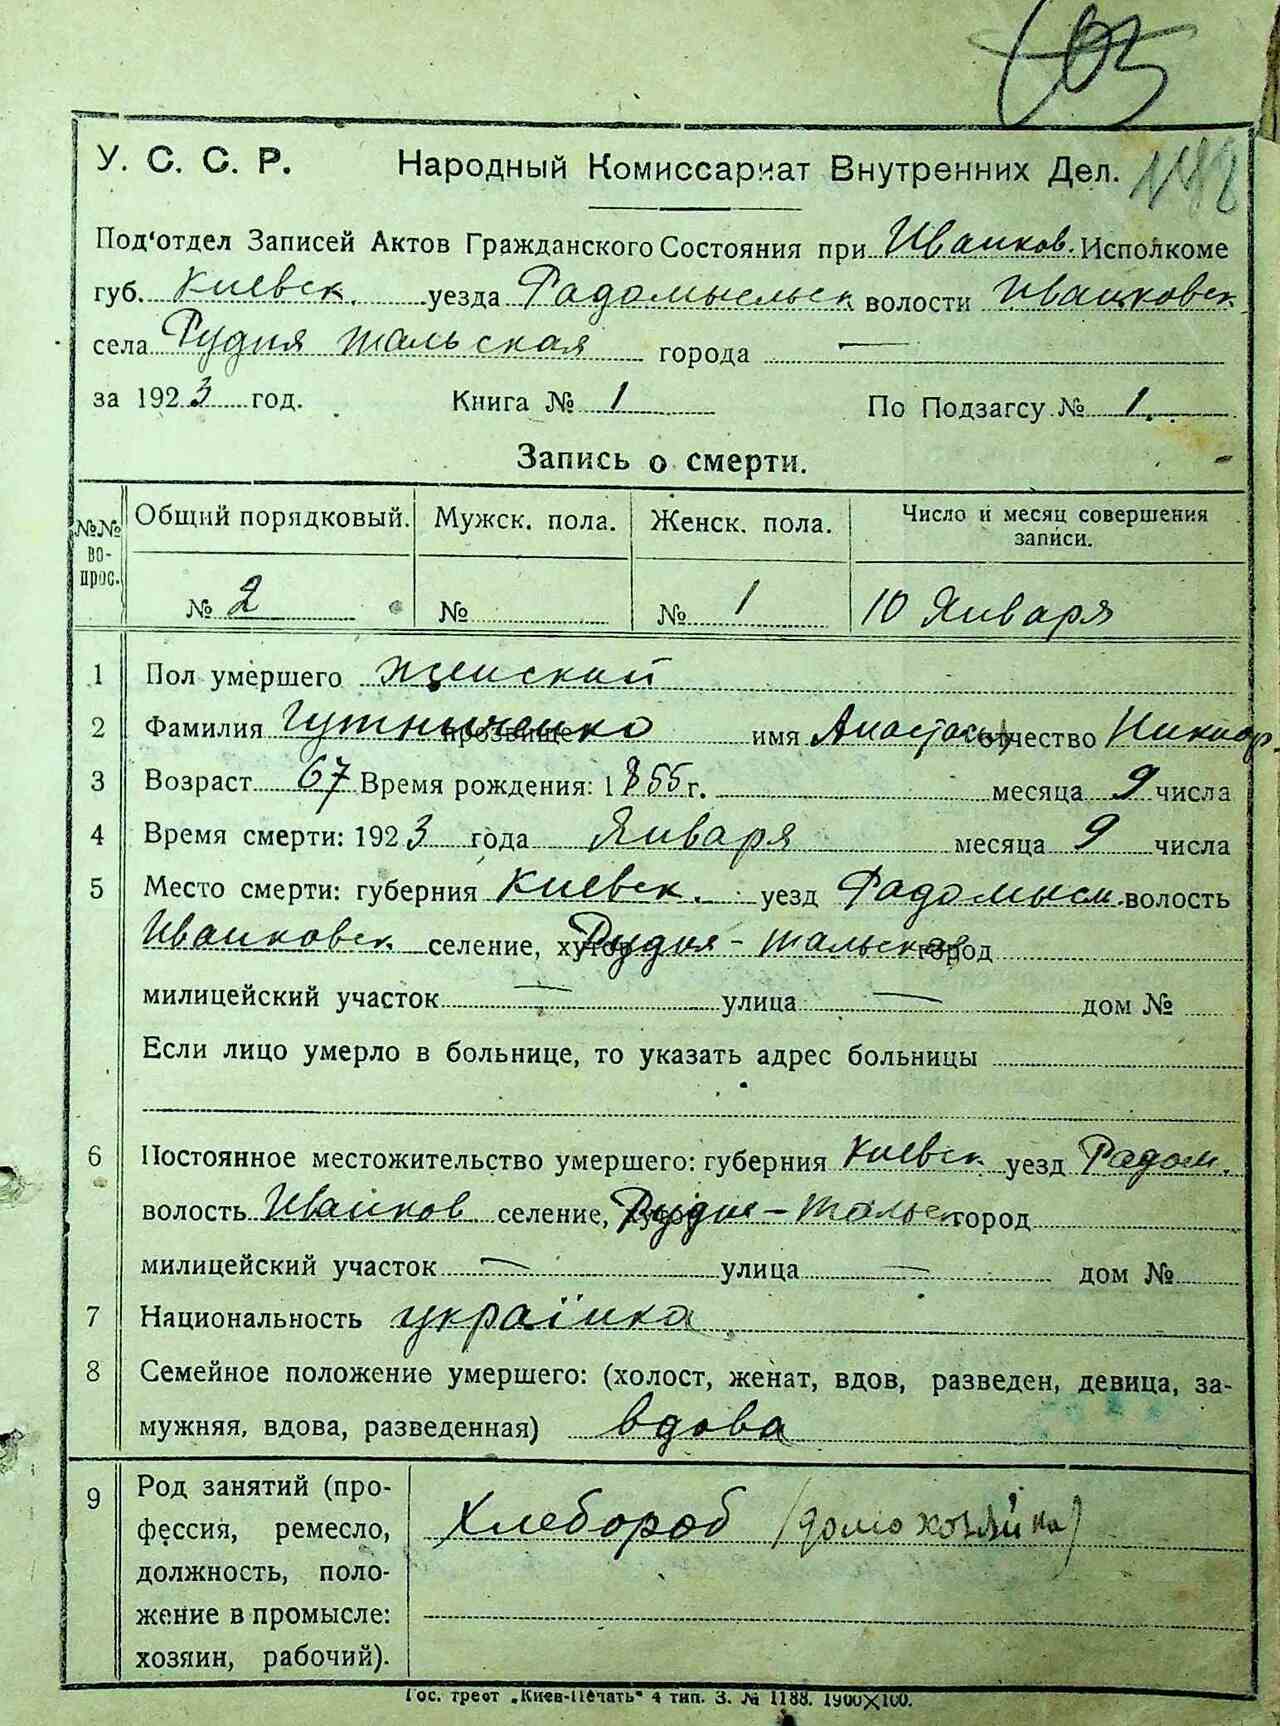 У. С. С. Р. Народный Комиссариат Внутренних Дел. 148
Под'отдел Записей Актов Гражданского Состояния при Иванков. Исполкоме
губ. Киевск. уезда Радомысльск волости Иванковск
села Рудня Тальская города —
за 1923 год. Книга № 1 По Подзагсу № 1.
Запись о смерти.
№№ вопрос. Общий порядковый. Мужск. пола. Женск. пола. Число и месяц совершения записи.
№ 2 № № 1 10 Января
1 Пол умершего женский
2 Фамилия Гутниченко прозвище имя Анастасия отчество Никиф.
3 Возраст 67 Время рождения: 1855 г. месяца 9 числа
4 Время смерти: 1923 года Января месяца 9 числа
5 Место смерти: губерния Киевск. уезд Радомысл. волость
Иванковск селение, хутор Рудня-Тальская город
милицейский участок — улица — дом №
Если лицо умерло в больнице, то указать адрес больницы
6 Постоянное местожительство умершего: губерния Киевск уезд Радом.
волость Иванков селение, хутор Рудня-Тальск город
милицейский участок — улица — дом №
7 Национальность українка
8 Семейное положение умершего: (холост, женат, вдов, разведен, девица, за-
мужняя, вдова, разведенная) вдова
9 Род занятий (про-
фессия, ремесло,
должность, поло-
жение в промысле:
хозяин, рабочий).
Хлебороб (домохозяйка)
Гос. трест „Киев-Печать" 4 тип. З. № 1188. 1900×100.